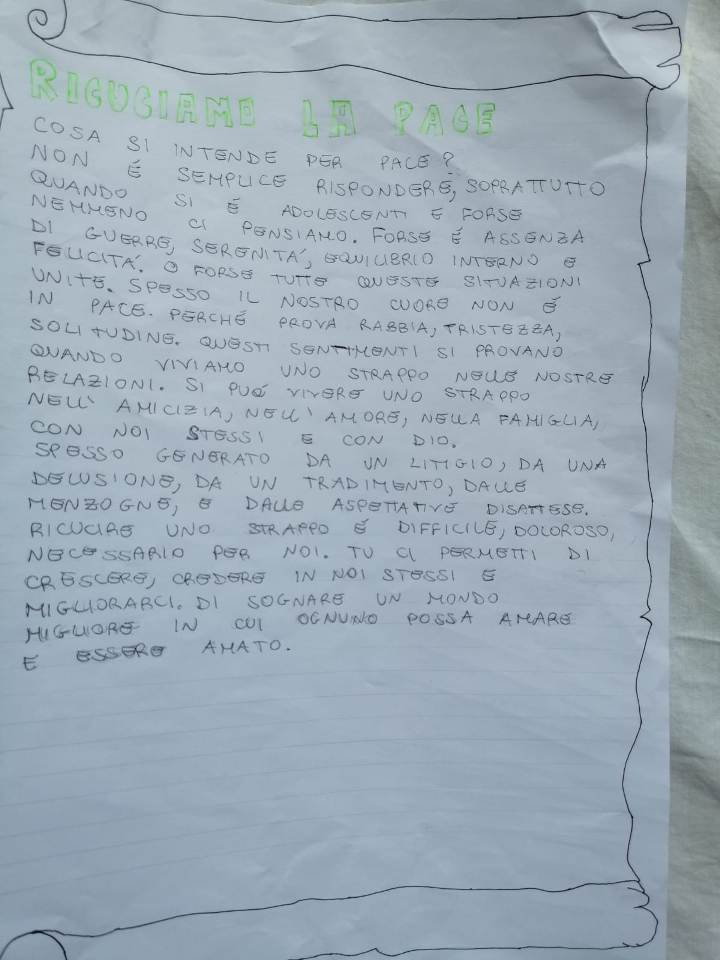 RICUCIAMO LA PACE
COSA SI INTENDE PER PACE?
NON É SEMPLICE RISPONDERE, SOPRATTUTTO
QUANDO SI É ADOLESCENTI E FORSE
NEMMENO CI PENSIAMO. FORSE É ASSENZA
DI GUERRE, SERENITÁ, EQUILIBRIO INTERNO E
FELICITÁ. O FORSE TUTTE QUESTE SITUAZIONI
UNITE. SPESSO IL NOSTRO CUORE NON É
IN PACE. PERCHÉ PROVA RABBIA, TRISTEZZA,
SOLITUDINE. QUESTI SENTIMENTI SI PROVANO
QUANDO VIVIAMO UNO STRAPPO NELLE NOSTRE
RELAZIONI. SI PUÓ VIVERE UNO STRAPPO
NELL' AMICIZIA, NELL' AMORE, NELLA FAMIGLIA,
CON NOI STESSI E CON DIO.
SPESSO GENERATO DA UN LITIGIO, DA UNA
DELUSIONE, DA UN TRADIMENTO, DALLE
MENZOGNE, E DALLE ASPETTATIVE DISATTESE.
RICUCIRE UNO STRAPPO É DIFFICILE, DOLOROSO,
NECESSARIO PER NOI. TU CI PERMETTI DI
CRESCERE, CREDERE IN NOI STESSI E
MIGLIORARCI. DI SOGNARE UN MONDO
MIGLIORE IN CUI OGNUNO POSSA AMARE
E ESSERE AMATO.